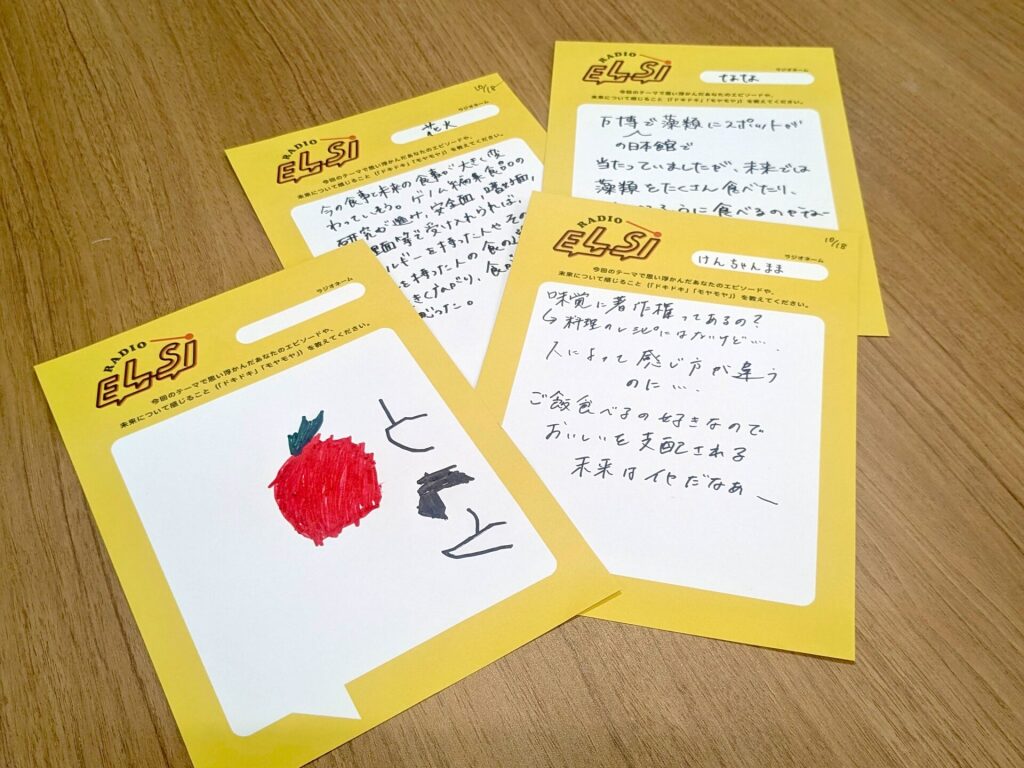 10/18
RADIO
ELSI
ラジオネーム
花火
今回のテーマで思い浮かんだあなたのエピソードや、
未来について感じること(「ドキドキ」「モヤモヤ」)を教えてください。
今の食事と未来の食事が大きく変
わっていそう。ゲノム編集食品の
研究が進み、安全面、嗜好面、
理面等で受け入れられば、
ルギーを持った人や、その
を持った人の食の
きく広がり、食が
RADIO
ELSI
ラジオネーム
今回のテーマで思い浮かんだあなたのエピソードや、
未来について感じること(「ドキドキ」「モヤモヤ」)を教えてください。
万博で藻類にスポットが
の日本館で
当たっていましたが、未来では
藻類をたくさん食べたり、
ように食べるの
RADIO
ELSI
ラジオネーム
今回のテーマで思い浮かんだあなたのエピソードや、
未来について感じること(「ドキドキ」「モヤモヤ」)を教えてください。
10/18
RADIO
ELSI
ラジオネーム
けんちゃんまま
今回のテーマで思い浮かんだあなたのエピソードや、
未来について感じること(「ドキドキ」「モヤモヤ」)を教えてください。
味覚に著作権ってあるの?
↳料理のレシピにはないけど…。
人によって感じ方が違う
のに…。
ご飯食べるの好きなので
おいしいを支配される
未来はイヤだなあー